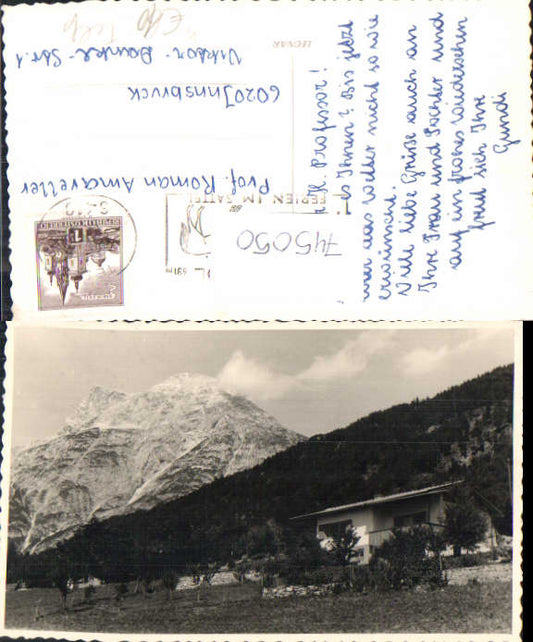 H. Professor!
Ihnen? Bis jetzt
war das Wetter nicht so wie
erwünscht.
Viele liebe Grüße auch an
Ihre Frau und Tochter und
auf ein frohes Wiedersehen
freut sich Ihre
Gundi
745050
FERIEN IM SATTEL
REPUBLIK ÖSTERREICH
Prof. Roman Amaretter
6020 Innsbruck
Viktor-Dankl-Str. 1